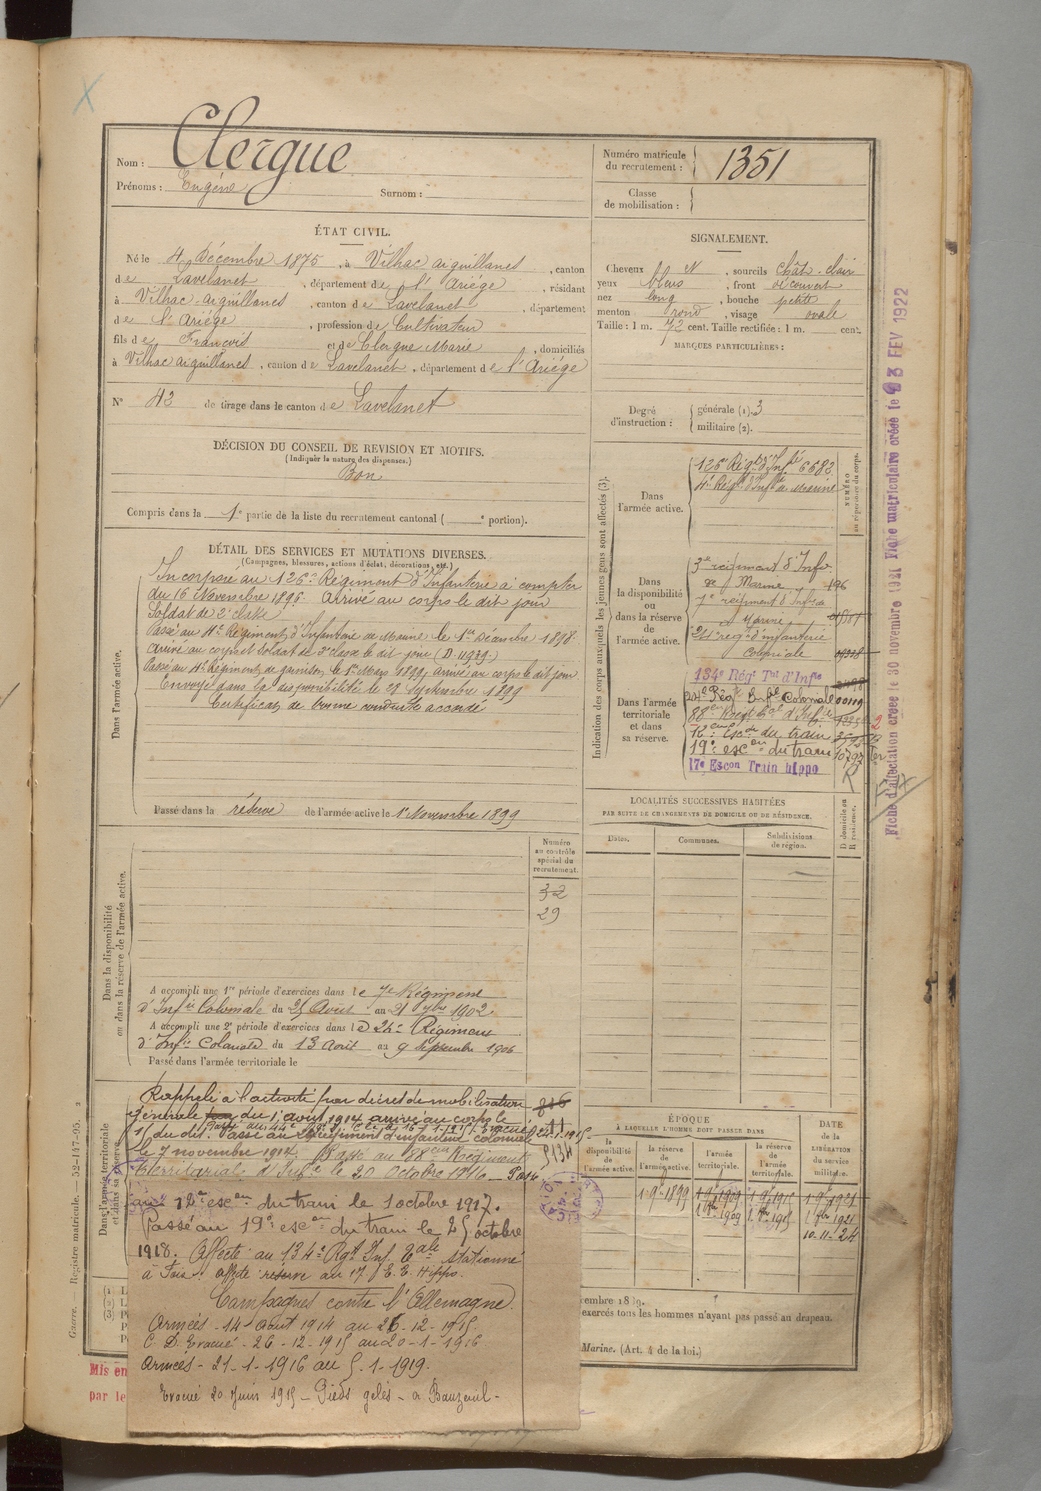 Nom : Clergue
Prénoms : Eugène Surnom :
Numéro matricule du recrutement : 1351
Classe de mobilisation :
ÉTAT CIVIL.
Né le 4 Décembre 1875, à Vilhac aiguillanes, canton
de Lavelanet, département de l'Ariége, résidant
à Vilhac aiguillanes, canton de Lavelanet, département
de l'Ariége, profession de Cultivateur
fils de François et de Clergue Marie, domiciliés
à Vilhac aiguillanes, canton de Lavelanet, département de l'Ariége
N° 43 de tirage dans le canton de Lavelanet
SIGNALEMENT.
Cheveux N, sourcils chât. clair
yeux bleus, front découvert
nez long, bouche petite
menton rond, visage ovale
Taille : 1 m. 72 cent. Taille rectifiée : 1 m. cent.
MARQUES PARTICULIÈRES :
Degré d'instruction : générale (1). 3
militaire (2).
DÉCISION DU CONSEIL DE REVISION ET MOTIFS.
(Indiquer la nature des dispenses.)
Bon
Compris dans la 1e partie de la liste du recrutement cantonal ( e portion).
DÉTAIL DES SERVICES ET MUTATIONS DIVERSES.
(Campagnes, blessures, actions d'éclat, décorations, etc.)
Dans l'armée active.
Incorporé au 126e Régiment d'Infanterie à compter
du 16 Novembre 1896 Arrivé au corps le dit jour
Soldat de 2e classe
Passé au 4e Régiment d'Infanterie de Marine le 1er Décembre 1898
arrivé au corps et soldat de 2e classe le dit jour
Envoyé dans la disponibilité le 28 Septembre 1899
Certificat de bonne conduite accordé
Passé dans la réserve de l'armée active le 1 Novembre 1899
Indication des corps auxquels les jeunes gens sont affectés (3).
NUMÉRO au répertoire du corps.
Dans l'armée active.
126e Régt d'Infie 6582
4e Régt d'Infie de Marine
Dans la disponibilité ou dans la réserve de l'armée active.
3e régiment d'Infie
de Marine 196
7e régiment d'Infie
de Marine
24e regt d'infanterie
Coloniale
Dans l'armée territoriale et dans sa réserve.
134e Régt Tal d'Infie
24e Régt Infie Coloniale 00119
88e Regt Tal d'Infie
12e Esc on du train
19e esc on du train 10797
17e Escon Train hippo
Fiche d'affectation créée le 30 novembre 1921 Fiche matriculaire créée le 23 FEV 1922
LOCALITÉS SUCCESSIVES HABITÉES
PAR SUITE DE CHANGEMENTS DE DOMICILE OU DE RÉSIDENCE.
Dates. Communes. Subdivisions de région. D domicile ou R résidence.
Numéro au contrôle spécial du recrutement.
32
29
Dans la disponibilité ou dans la réserve de l'armée active.
A accompli une 1re période d'exercices dans le 7e Régiment
d'Infie Coloniale du 25 Août au 21 7bre 1902
A accompli une 2e période d'exercices dans le 24e Régiment
d'Infie Coloniale du 13 Août au 9 Septembre 1906
Passé dans l'armée territoriale le
Dans l'armée territoriale et dans sa réserve
Rappelé à l'activité par décret de mobilisation
générale du 1 août 1914 arrivé au corps le
du dit. Passé au régiment d'infanterie coloniale
le 7 novembre 1914. Passé au 88eme Régiment
Territorial d'Infie le 20 Octobre 1916 Passé
au 12e escon du train le 1 octobre 1917.
Passé au 19e escon du train le 25 octobre
1918. Affecté au 134e Rgt Inf. stationné
à Foix. affecté réserve au 17e E. T. Hippo.
Campagnes contre l'Allemagne.
Armées - 14 août 1914 au 25-12-1915
C. D. Evacué - 26-12-1915 au 20-1-1916
Armées - 21-1-1916 au 5-1-1919.
Evacué 20 Juin 1915 - Pieds gelés - à
ÉPOQUE
À LAQUELLE L'HOMME DOIT PASSER DANS
la disponibilité de l'armée active. la réserve de l'armée active. l'armée territoriale. la réserve de l'armée territoriale.
DATE de la LIBÉRATION du service militaire.
1 9bre 1899 1 9bre 1909 1 9bre 1915 1 9bre 1921
1 8bre 1909 1 8bre 1915 1 8bre 1921
10-11-24
exercés tous les hommes n'ayant pas passé au drapeau.
Marine. (Art. 4 de la loi.)
Guerre. — Registre matricule. — 52-147-95.
Mis en
par le